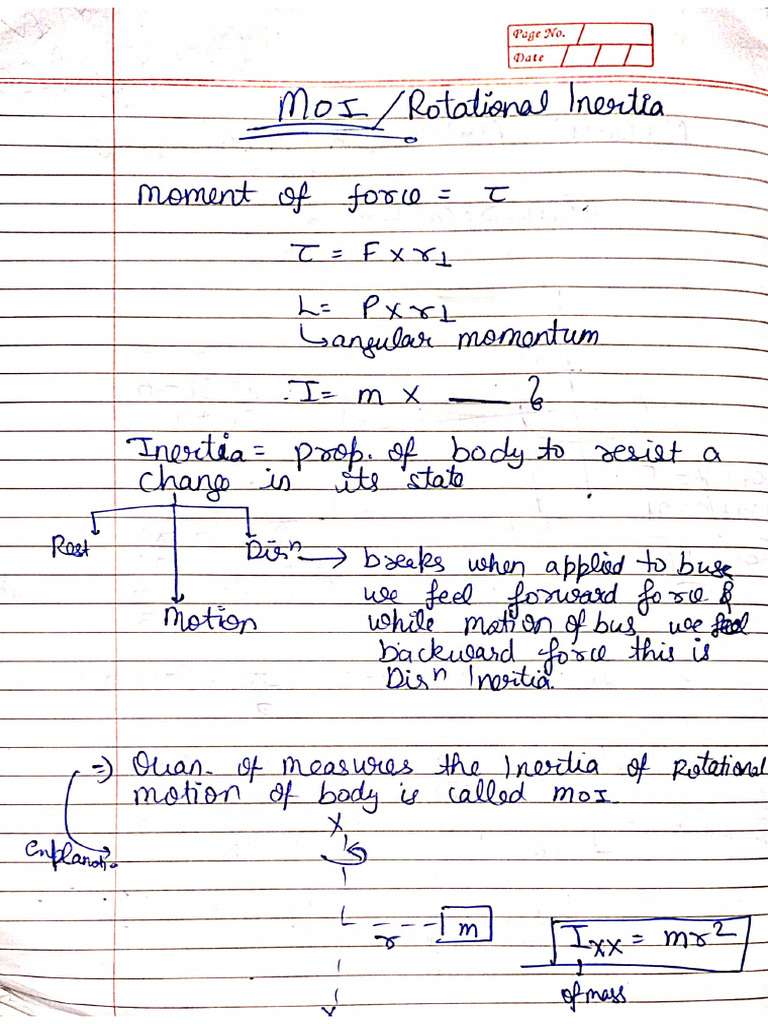 Page No.
Date
MOI / Rotational Inertia
Moment of force = τ
τ = F × r⊥
L = P × r⊥
↳ angular momentum
I = m × ___ ?
Inertia = prop. of body to resist a
change in its state
Rest
Dirⁿ → breaks when applied to bus
we feel forward force &
Motion
while motion of bus we feel
backward force this is
Dirⁿ Inertia.
⇒) Quan. of measures the Inertia of Rotational
motion of body is called MOI.
Explanati
X
r
m
I_xx = mr²
of mass